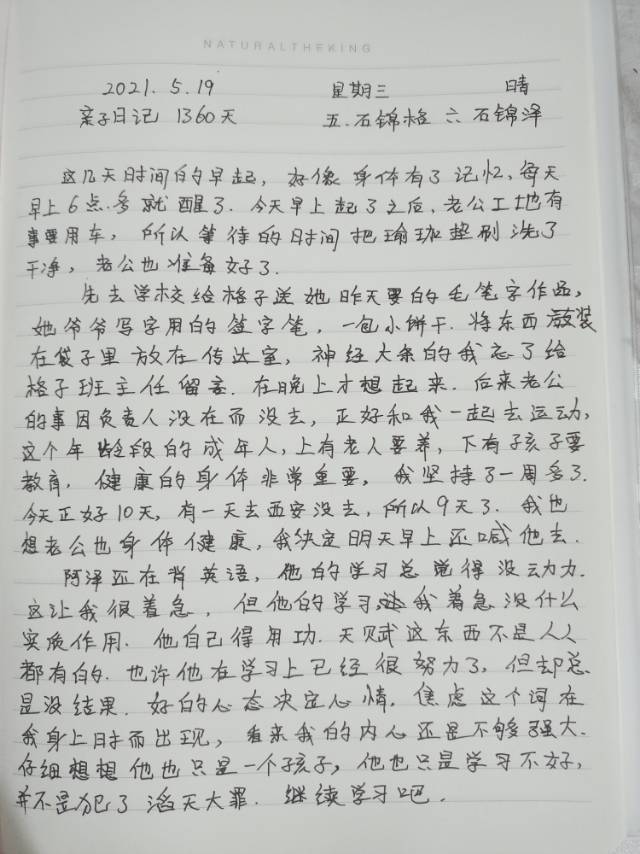 NATURALTHEKING
2021.5.19 星期三 晴
亲子日记 1360天 五.石锦格 六 石锦泽
这几天时间的早起，好像身体有了记忆，每天
早上6点多就醒了．今天早上起了之后，老公工地有
事要用车，所以等待的时间把瑜珈垫刷洗了
干净，老公也准备好了．
先去学校给格子送她昨天要的毛笔字作品，
她爷爷写字用的签字笔，一包小饼干．将东西放装
在袋子里放在传达室，神经大条的我忘了给
格子班主任留言．在晚上才想起来．后来老公
的事因负责人没在而没去，正好和我一起去运动，
这个年龄段的成年人，上有老人要养，下有子孩子要
教育．健康的身体非常重要，我坚持了一周多了．
今天正好10天，有一天去西安没去，所以9天了．我也
想老公也身体健康，我决定明天早上还喊他去．
阿泽还在背英语，他的学习总觉得没动力．
这让我很着急，但他的学习我着急没什么
实质作用．他自己得用功．天赋这东西不是人人
都有的．也许他在学习上已经很努力了，但却总
是没结果．好的心态决定心情．焦虑这个词在
我身上时而出现，看来我的内心还是不够强大．
仔细想想他也只是一个孩子，他也只是学习不好，
并不是犯了滔天大罪．继续学习吧．